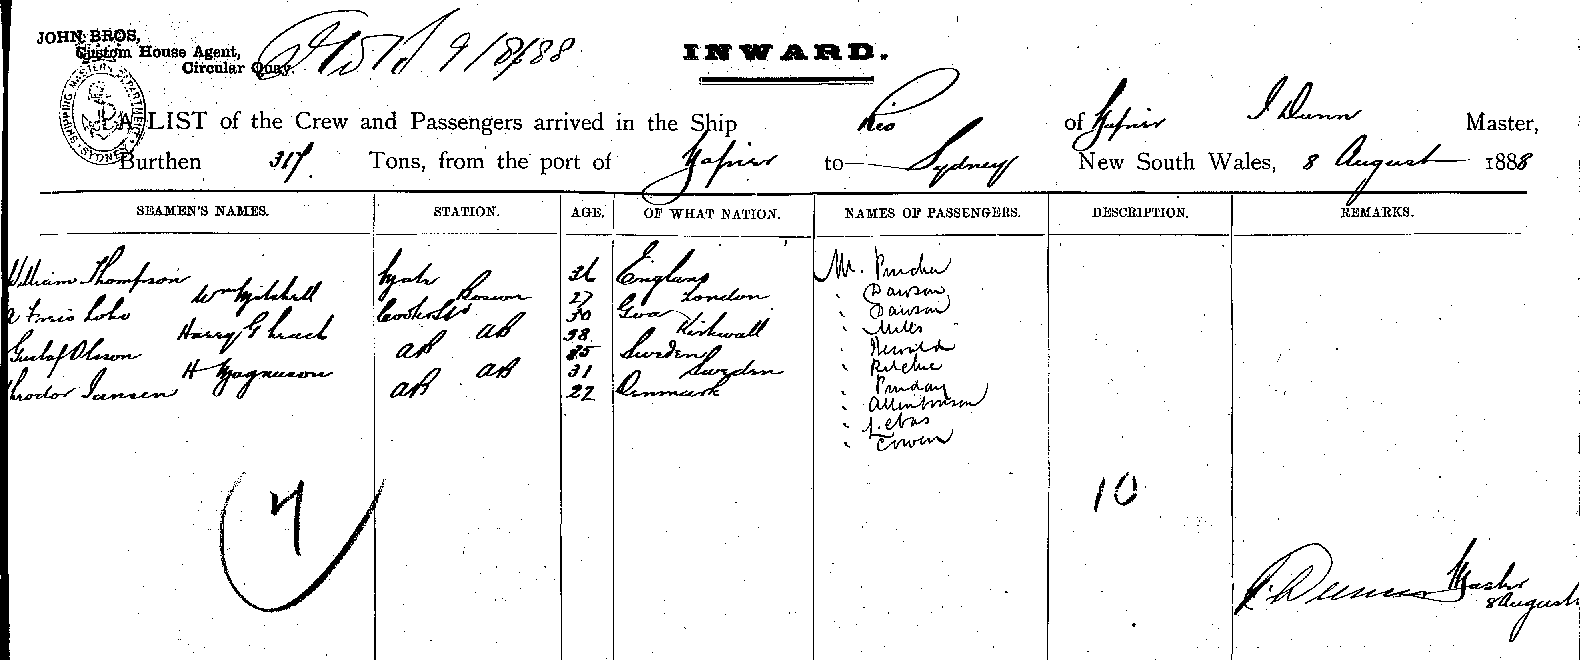 JOHN BROS,
Custom House Agent,
Circular Quay
9/8/88
INWARD.
SHIPPING MASTER'S DEPARTMENT SYDNEY
A LIST of the Crew and Passengers arrived in the Ship Rio of Napier J Dunn Master,
Burthen 317 Tons, from the port of Napier to Sydney New South Wales, 8 August 1888
SEAMEN'S NAMES. STATION. AGE. OF WHAT NATION. NAMES OF PASSENGERS. DESCRIPTION. REMARKS.
William Thompson Mate 36 England Mr.
Wm Mitchell Bosun 27 London " Dawson
Lobo Cook & Std 30 Goa " Dawson
Harry G AB 38 Kirkwall " Miles
Gustaf Olsson AB 25 Sweden
H Magnuson AB 31 Sweden " Ritchie
Theodor Jansen AB 22 Denmark " Purday
"
" Lebas
" Cowen
7
10
J. Dunn Master
8 August